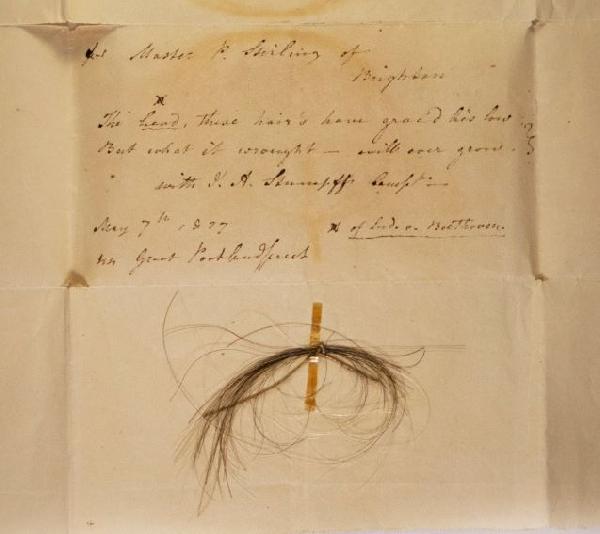 for Master P. Stirling of
Brighton
The head, these hair's have grac'd lies low
But what it wrought – will ever grow.
with J. A. Stumpff Compts –
May 7th 1827
of Lud. v. Beethoven.
44 Great Portland Street